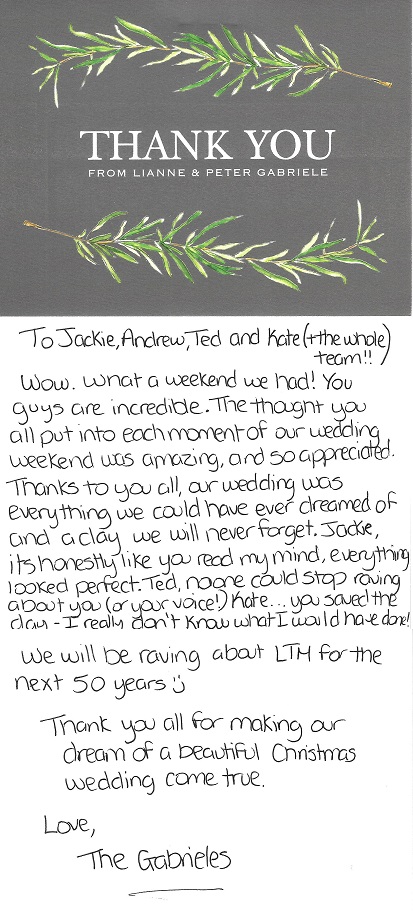 THANK YOU
FROM LIANNE & PETER GABRIELE
To Jackie, Andrew, Ted and Kate (+the whole
team!!)
Wow. What a weekend we had! You
guys are incredible. The thought you
all put into each moment of our wedding
weekend was amazing, and so appreciated.
Thanks to you all, our wedding was
everything we could have ever dreamed of
and a day we will never forget. Jackie,
its honestly like you read my mind, everything
looked perfect. Ted, no one could stop raving
about you (or your voice!) Kate... you saved the
day - I really don't know what I would have done!
We will be raving about LTM for the
next 50 years :)
Thank you all for making our
dream of a beautiful Christmas
wedding come true.
Love,
The Gabrieles